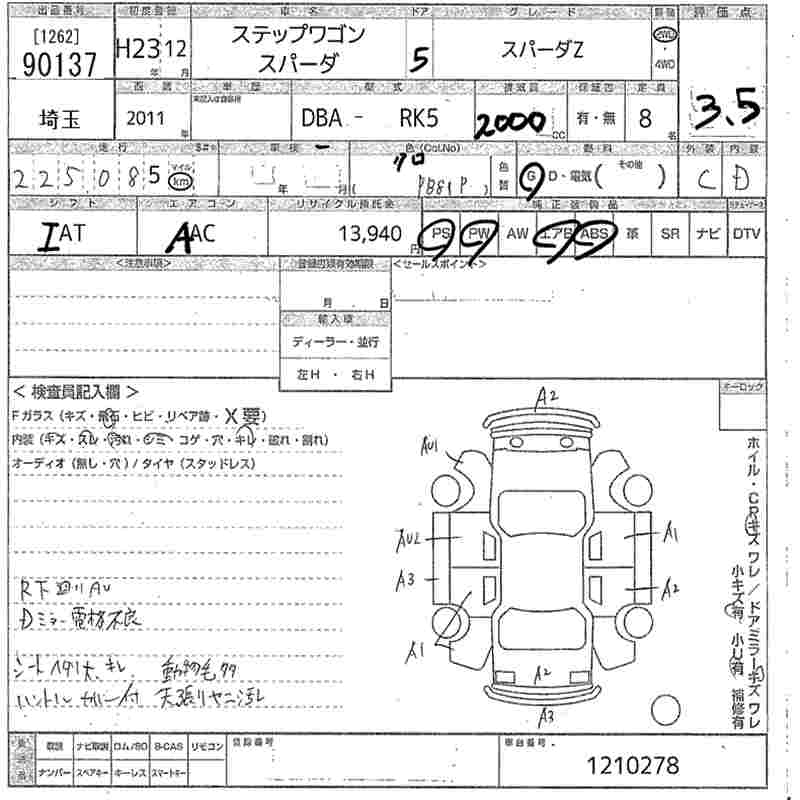 出品番号 初度登録 車名 ドア グレード 駆動 評価点
[1262] 90137 H23 年 12 月 ステップワゴン スパーダ 5 スパーダZ 2WD・4WD 3.5
西暦 車歴 型式 排気量 定員
埼玉 2011 年 DBA - RK5 2000 CC 有・無 8 名
走行 車検 色(Col.No) 燃料 外装 内装
225,085 マイル km 年 月 クロ PB81P 色替 G D・電気( その他 ) C D
シフト エアコン リサイクル預託金 純正装備品
IAT AAC 13,940 円 PS PW AW エアB ABS 革 SR ナビ DTV
<注意事項> 登録書類有効期限 <セールスポイント>
月 日
輸入車
ディーラー・並行
左H・右H
<検査員記入欄> キーロック
Fガラス(キズ・飛石・ヒビ・リペア跡・X要)
内装(キズ・スレ・汚れ・シミ コゲ・穴・キレ・破れ・割れ)
オーディオ(無し・穴)/タイヤ(スタッドレス)
R下廻りAU
Dミラー電格不良
シート ヘタリ大、キレ 動物毛多
ハンドル カバー付 天張りヤニ汚レ
A2
AU1
AU2 A1
A3 A2
A1
A2
A3
ホイル・CRキズ ワレ/ドアミラーキズ ワレ
小キズ有 小U有 補修有
取説 ナビ取説 ロム/SD B-CAS リモコン 登録番号 車台番号
ナンバー スペアキー キーレス スマートキー 1210278